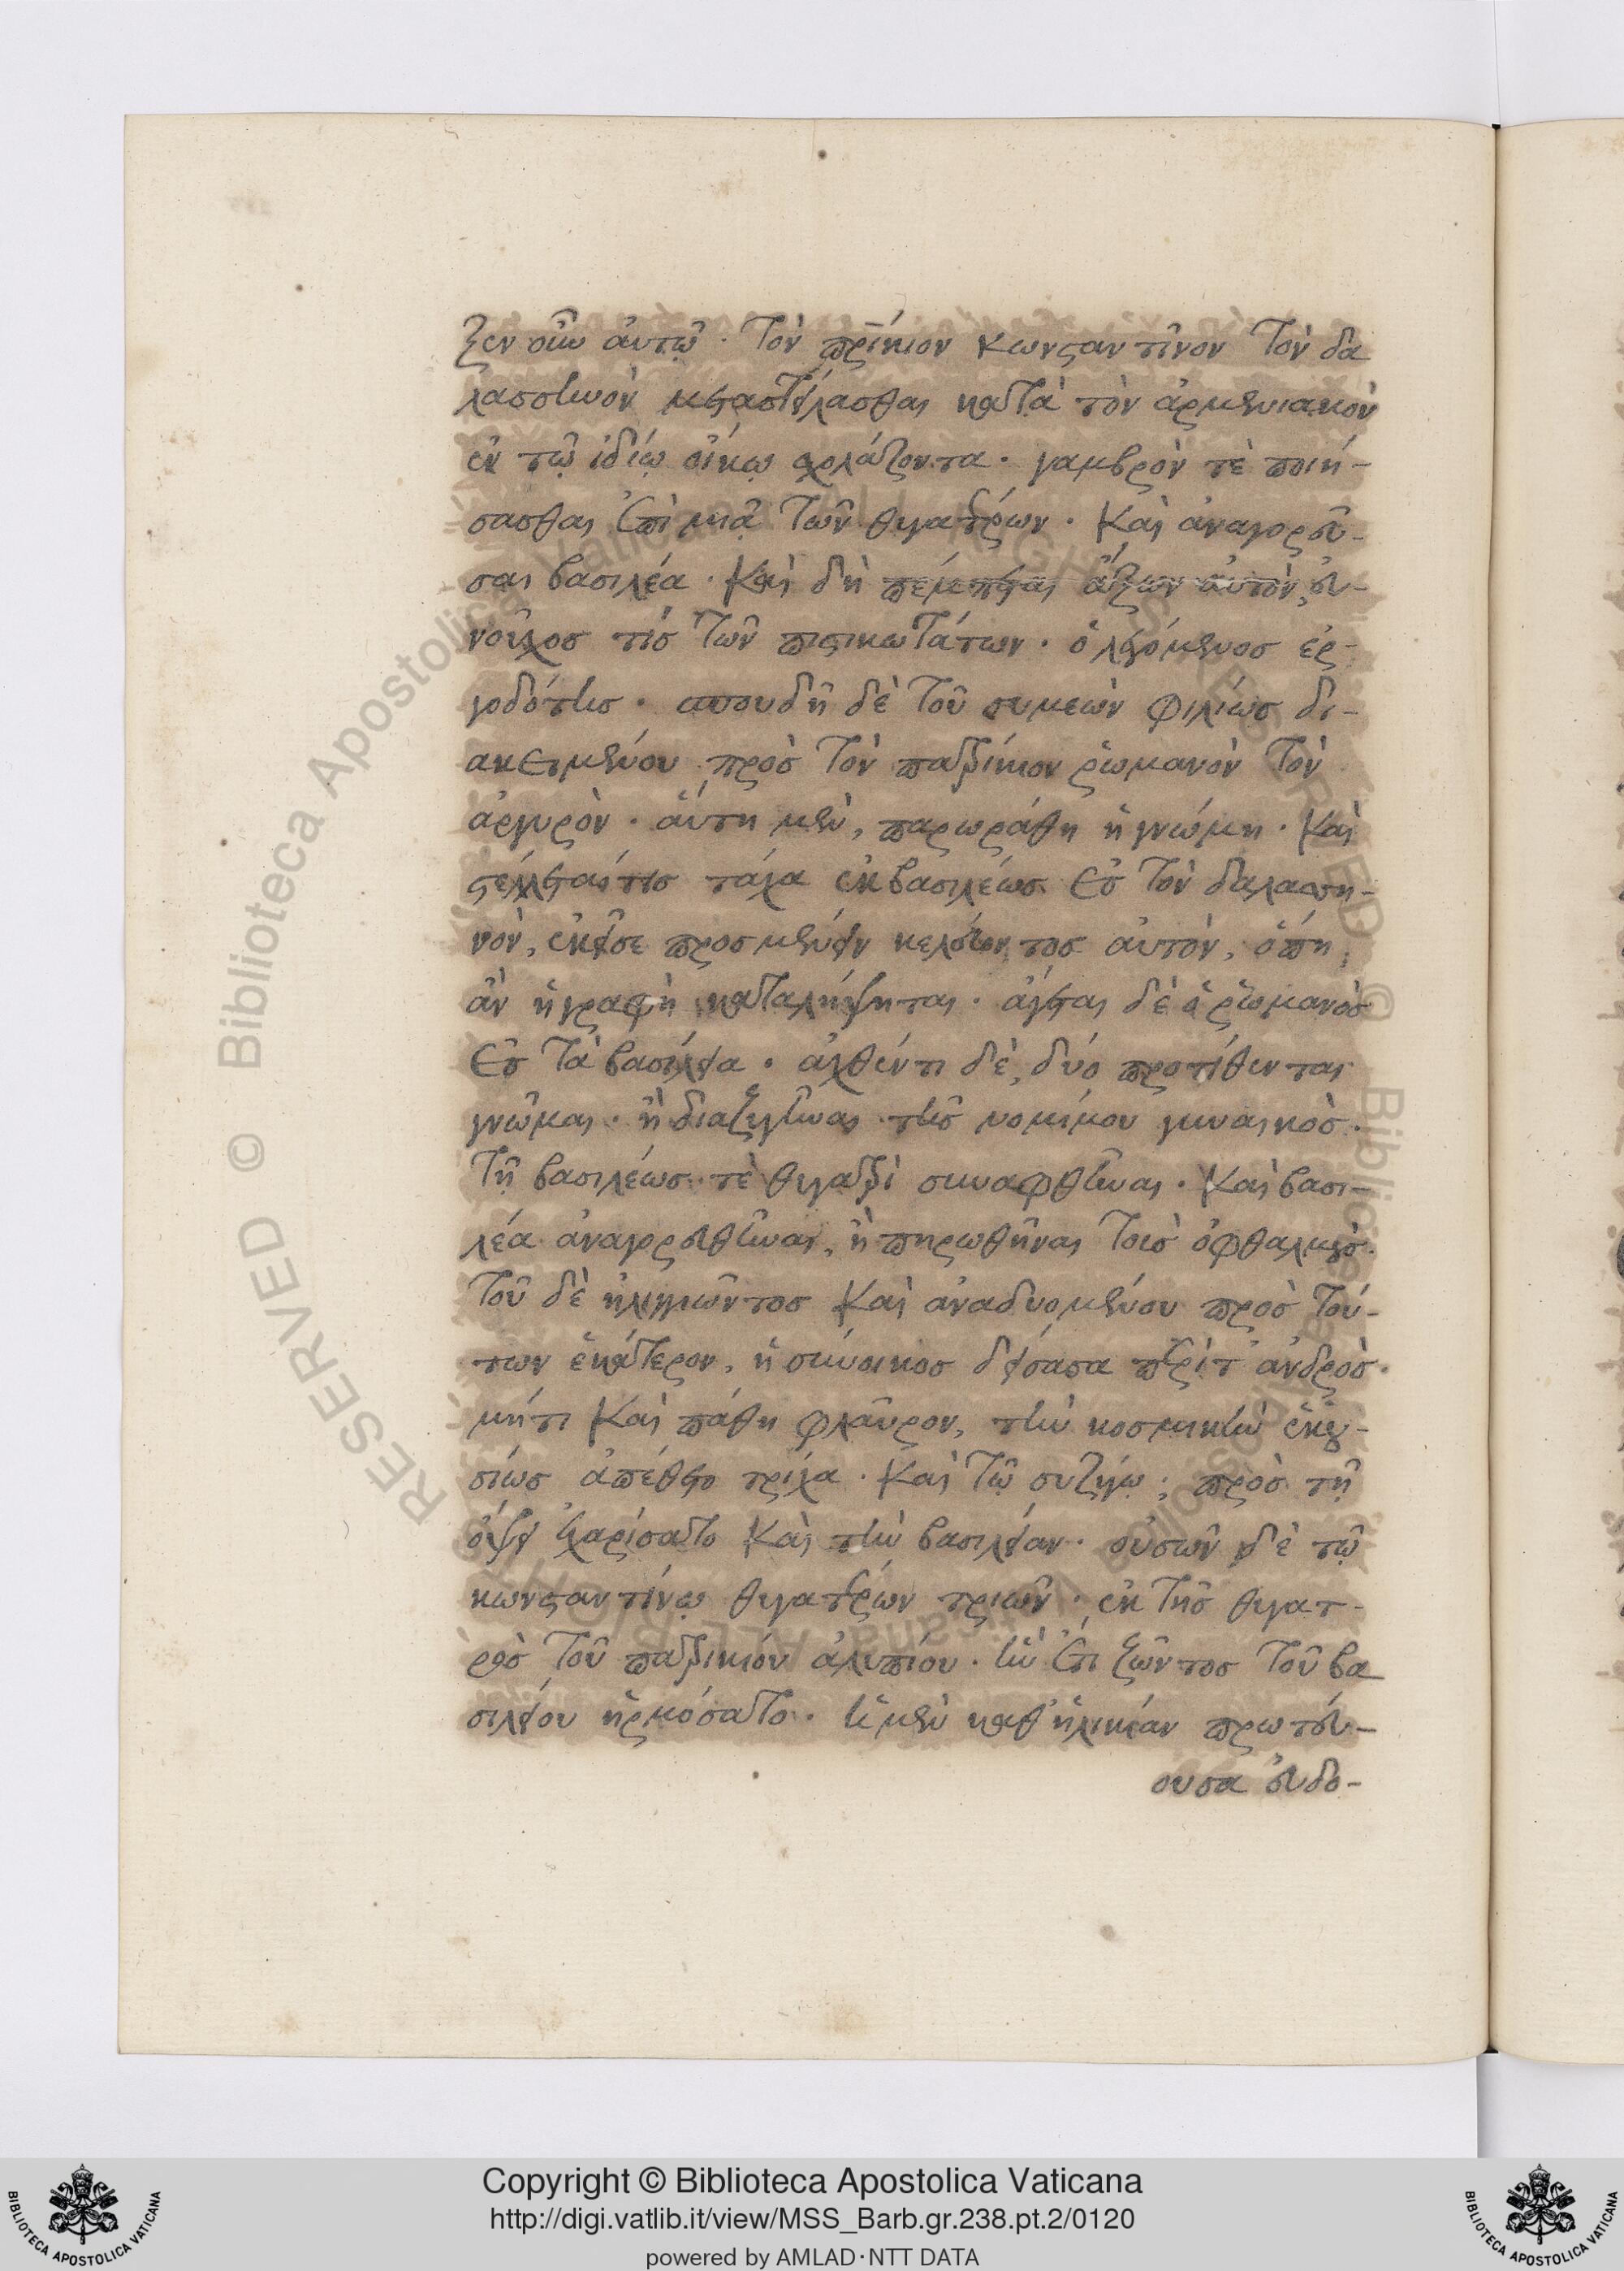 ξεν οὖν ἀυτῶ. Τὸν πρ̄ίκιον κωνσταντῖνον Τὸν δα
λασσηνὸν μεταστείλασθαι κατὰ τὸν ἀρμενιακὸν
ἐν τῶ ἰδίω οἴκω σχολάζοντα. γαμβρὸν τὲ ποιή-
σασθαι ἐπὶ μιᾶ Τῶν θυγατέρων. Καὶ ἀναγορεῦ-
σαι βασιλέα. Καὶ δὴ πέμπεται ἄξων ἀυτὸν, ἐυ-
νοῦχοσ τίσ Τῶν πιστικωτάτων. ὁ λεγόμενοσ ἐρ-
γοδότησ. σπουδῆ δὲ Τοῦ συμεὼν φιλίωσ δι-
ακειμένου πρὸσ Τὸν πατρίκιον ῥωμανὸν Τὸν
ἀργυρὸν. ἀύτη μὲν, παρωράθη ἡ γνώμη. Καὶ
στέλλεται τισ τάχα ἐκ βασιλέωσ εἰσ Τὸν δαλασση-
νὸν, ἐκεῖσε προσμένειν κελεύοντοσ αὐτὸν, ὅπη,
ἂν ἡ γραφὴ καταλήψηται. ἄγεται δὲ ὁ ῥωμανὸσ
εἰσ Τὰ βασίλεια. ἀχθέντι δὲ, δύο προτίθενται
γνῶμαι. ἢ διαζυγῆναι τῆσ νομίμου γυναικὸσ.
Τῆ βασιλέωσ τὲ θυγατρὶ συναφθῆναι. Καὶ βασι-
λέα ἀναγορευθῆναι, ἢ πηρωθῆναι Τοὺσ ὀφθαλμοὺσ.
Τοῦ δὲ ἠλιγγιῶντοσ Καὶ ἀναδυομένου πρὸσ Τού-
των ἑκάτερον, ἡ σύνοικοσ δείσασα περὶ τ' ἀνδρὸσ.
μήτι Καὶ πάθη φλαῦρον, τὴν κοσμικὴν ἑκου-
σίωσ ἀπέθετο τρίχα. Καὶ Τῶ συζύγω; πρὸσ τῆ
ὄψει ἐχαρίσατο Καὶ τὴν βασιλείαν. οὐσῶν δὲ τῶ
κωνσταντίνω θυγατέρων τριῶν. ἐκ Τῆσ θυγατ-
ρὸσ Τοῦ πατρικίου ἀλυπίου. ἣν ἔτι ζῶντοσ Τοῦ βα
σιλείου ἡρμόσατο. ἡ μὲν καθ' ἡλικίαν πρωτεύ-
ουσα ἐυδο-
Copyright © Biblioteca Apostolica Vaticana
http://digi.vatlib.it/view/MSS_Barb.gr.238.pt.2/0120
powered by AMLAD·NTT DATA